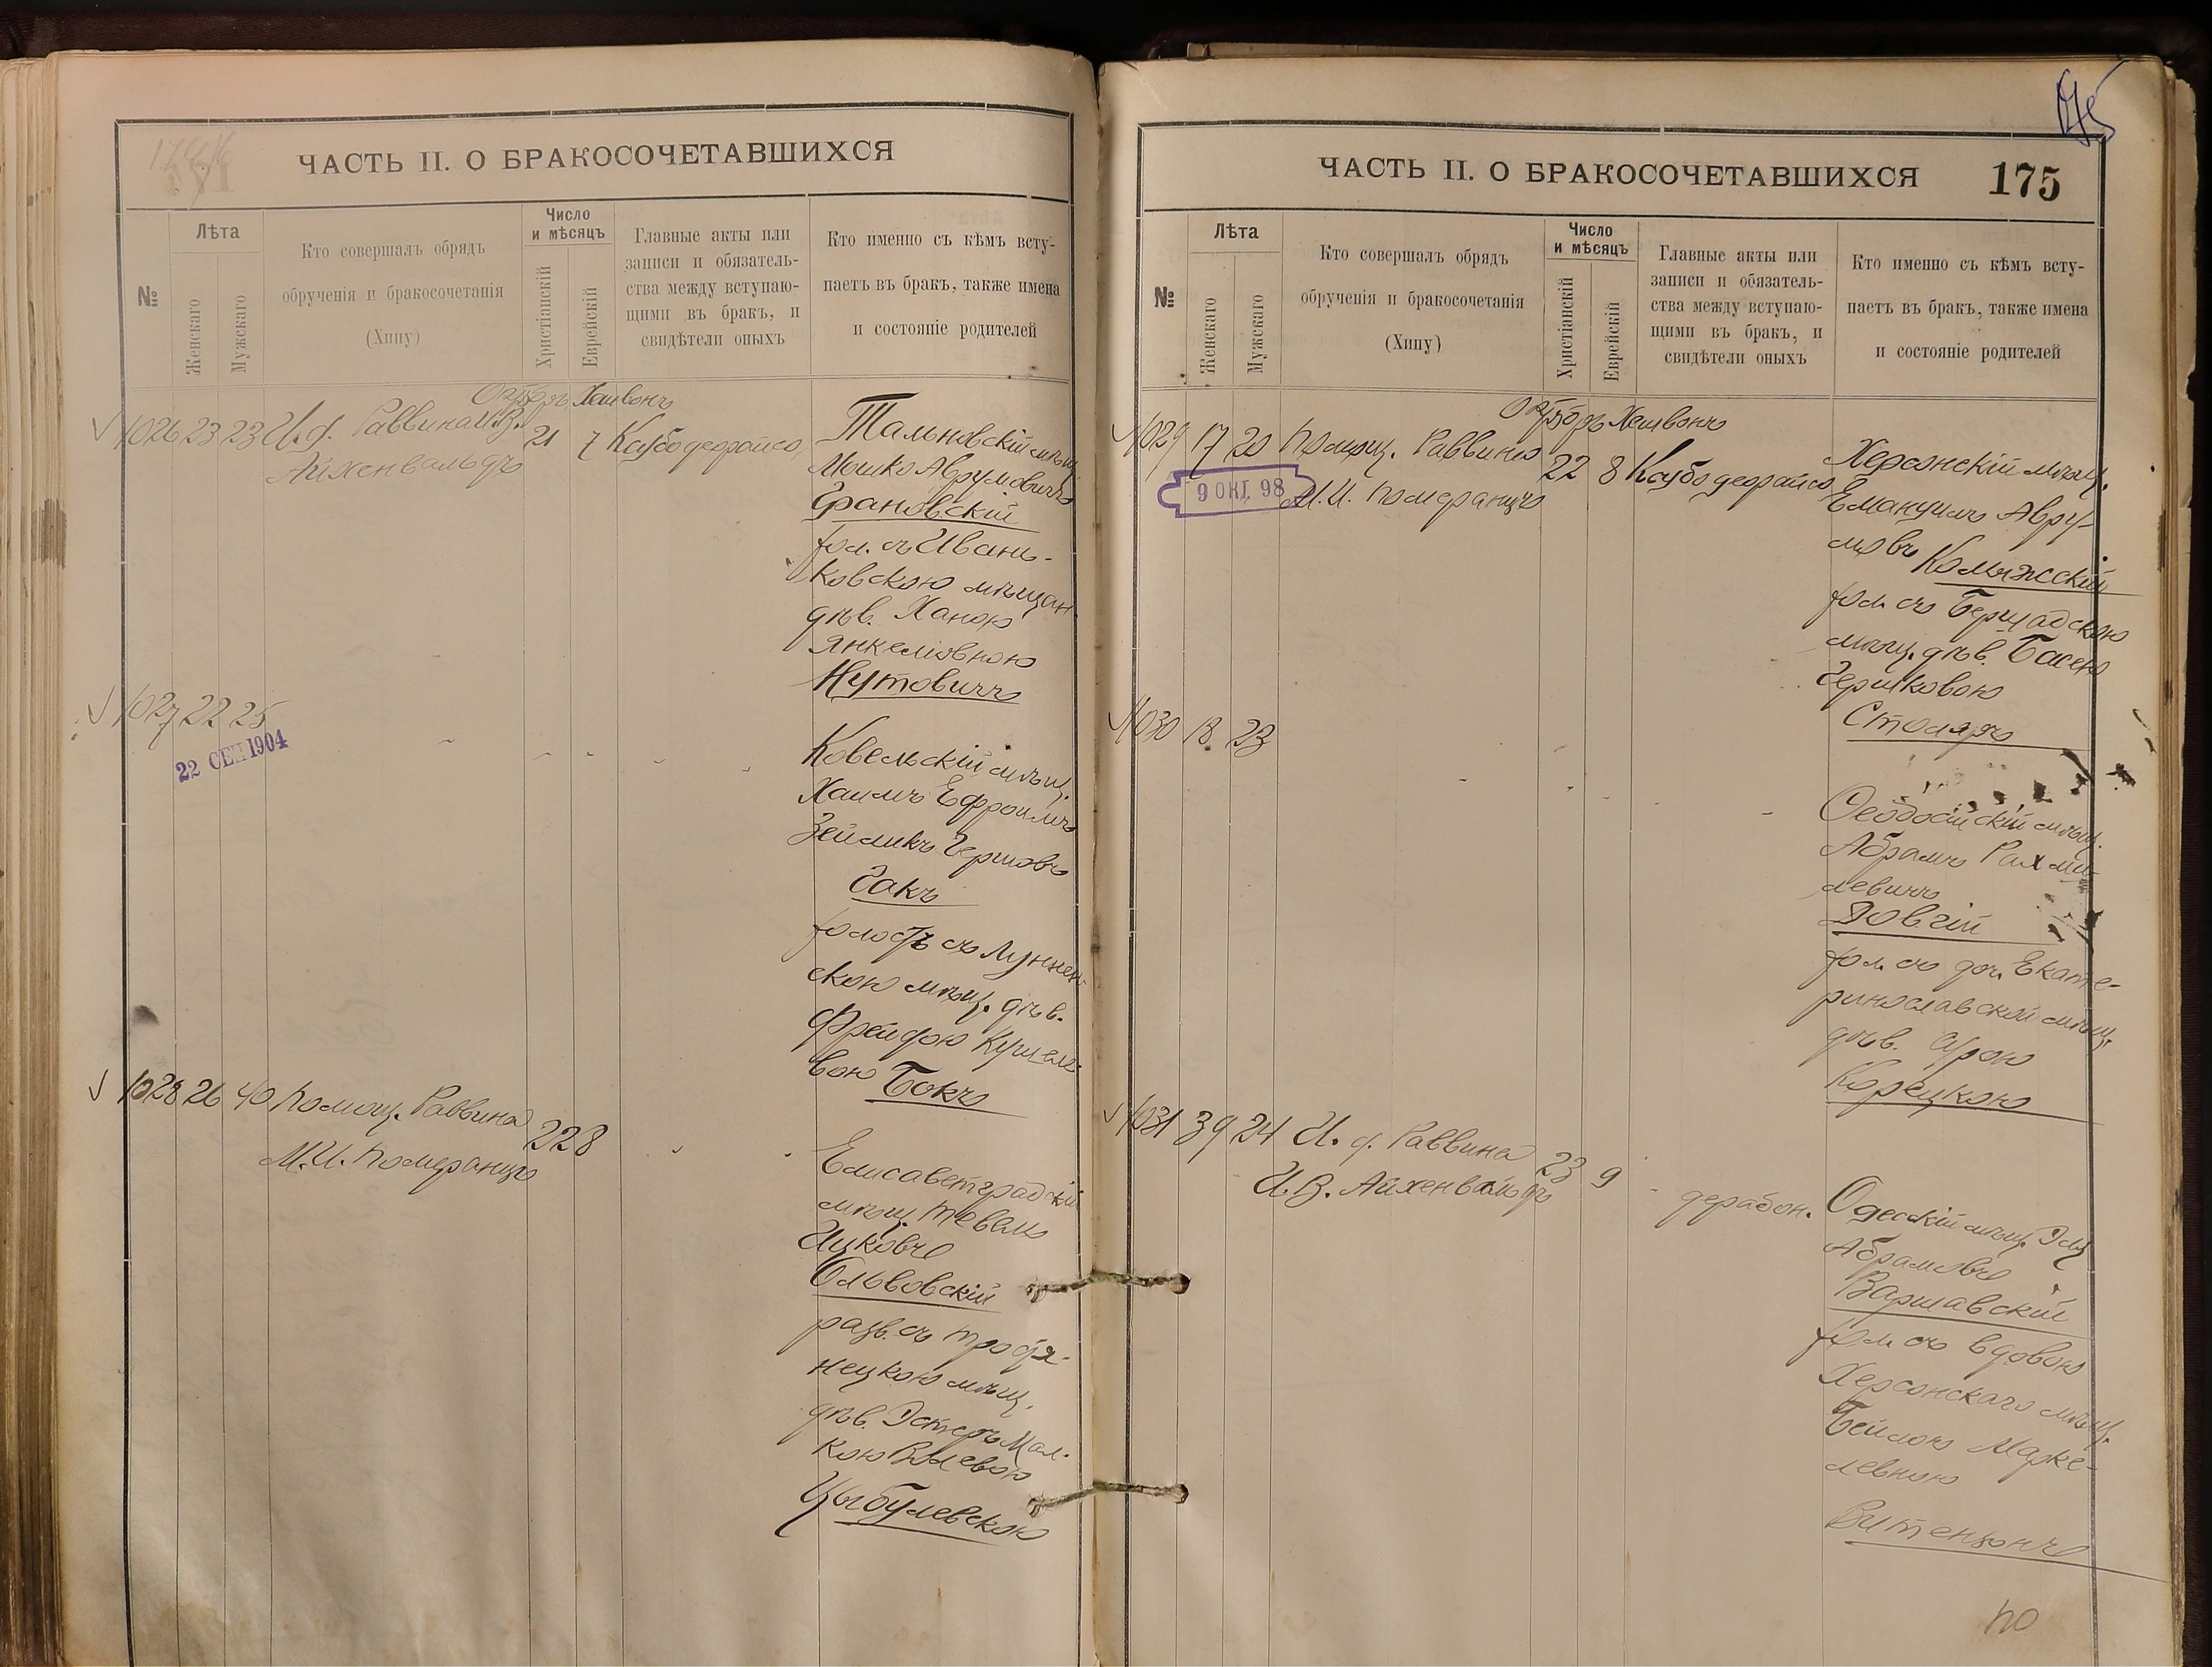 ЧАСТЬ II. О БРАКОСОЧЕТАВШИХСЯ
№
Лѣта
Женскаго
Мужскаго
Кто совершалъ обрядъ
обрученія и бракосочетанія
(Хипу)
Число
и мѣсяцъ
Христіанскій
Еврейскій
Главные акты или
записи и обязатель-
ства между вступаю-
щими въ бракъ, и
свидѣтели оныхъ
Кто именно съ кѣмъ всту-
паетъ въ бракъ, также имена
и состояніе родителей
Октябрь Хешвонъ
1026 23 23 И. д. Раввина И.В. 21 7
Айхенвальдъ
Тальновскій мѣщ.
Мошко Аврумовичъ
Грановскій
хол. съ Ивань-
ковскою мѣщан.
дѣв. Ханою
Янкелювною
Нутовичъ
1027 22 25
22 СЕН 1904
Ковельскій мѣщ.
Хаимъ Ефроимъ
Зейликъ Гершовъ
Гакъ
холостъ съ Луннен
скою мѣщ. дѣв.
Фрейдою Кушеле-
вою Бокъ
1028 26 40 Помощ. Раввина 22 8
М.И. Померанцъ
Елисаветградскій
мѣщ. Тевель
Ицковъ
Ольвовскій
разв. съ Тростя-
нецкою мѣщ.
дѣв. Эстеръ Мал-
кою Волевою
Цыбулевскою
ЧАСТЬ II. О БРАКОСОЧЕТАВШИХСЯ
175
175
№
Лѣта
Женскаго
Мужскаго
Кто совершалъ обрядъ
обрученія и бракосочетанія
(Хипу)
Число
и мѣсяцъ
Христіанскій
Еврейскій
Главные акты или
записи и обязатель-
ства между вступаю-
щими въ бракъ, и
свидѣтели оныхъ
Кто именно съ кѣмъ всту-
паетъ въ бракъ, также имена
и состояніе родителей
Октябрь Хешвонъ
1029 17 20 Помощ. Раввина 22 8
9 ОКТ. 98
М.И. Померанцъ
Херсонскій мѣщ.
Емануилъ Авру-
мовъ Коляжскій
хол. съ Бершадскою
мѣщ. дѣв. Басею
Гершковою
Столяръ
1030 18 23
Ѳеодосійскій мѣщ.
Абрамъ Рахми-
левичъ
Довгій
хол. съ доч. Екате-
ринославской мѣщ.
дѣв. Сурою
Корецкою
1031 39 24 И. д. Раввина 23 9
И.В. Айхенвальдъ
дерабон.
Одесскій мѣщ. Эли
Абрамовъ
Варшавскій
хол. съ вдовою
Херсонскаго мѣщ.
Бейлою Марке-
левною
Витензонъ
по